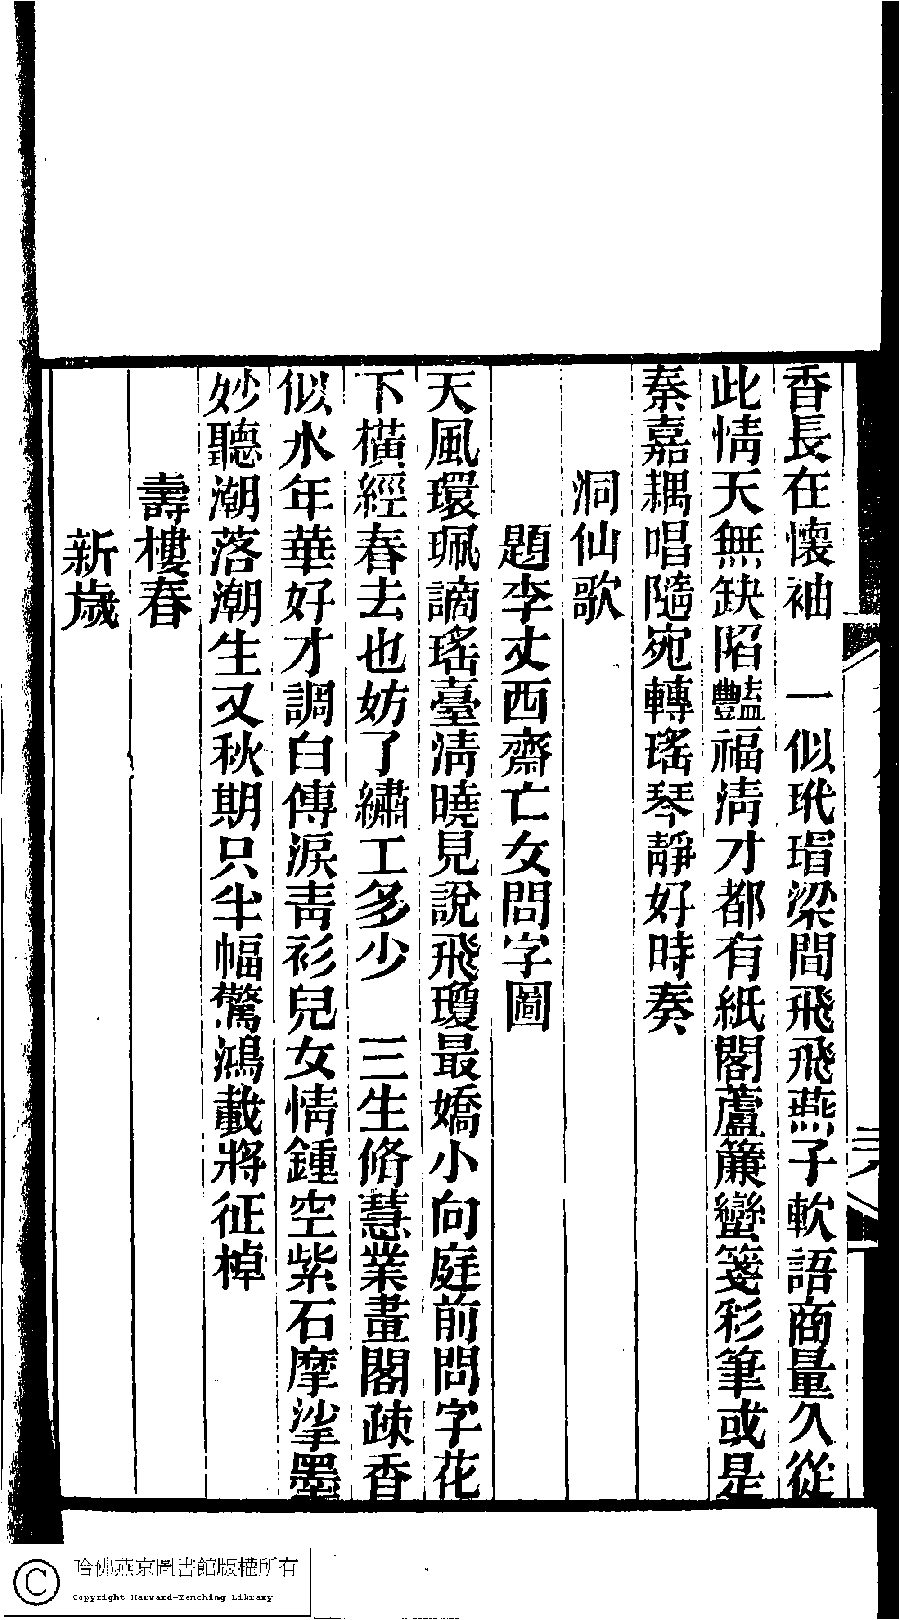 香長在懷袖　一似玳瑁梁間飛飛燕子軟語商量久從
此情天無缺陷豔福清才都有紙閣蘆簾蠻箋彩筆或是
秦嘉耦唱隨宛轉瑤琴靜好時奏
洞仙歌
題李丈西齋亡女問字圖
天風環珮謫瑤臺清曉見說飛瓊最嬌小向庭前問字花
下橫經春去也妨了繡工多少　三生脩慧業畫閣疎香
似水年華好才調白傅淚青衫兒女情鍾空紫石摩挲墨
妙聽潮落潮生又秋期只半幅驚鴻載將征棹
壽樓春
新歲
哈佛燕京圖書館版權所有
Copyright Harvard-Yenching Library